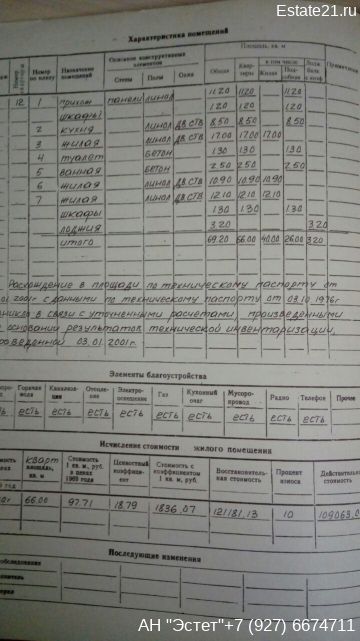 Estate21.ru
Характеристика помещений
Площадь, кв. м
Номер по плану Назначение помещений Описание конструктивных элементов Общая Квартиры в том числе Примечание
Стены Полы Окна Жилая Подсобная
12 1 прихож панели линол. 11.20 11.20 11.20
шкафы 1.20 1.20 1.20
2 кухня линол дв ств 8.50 8.50 8.50
3 жилая линол дв ств 17.00 17.00 17.00
4 туалет бетон 1.30 1.30 1.30
5 ванная бетон 2.50 2.50 2.50
6 жилая линол дв ств 10.90 10.90 10.90
7 жилая линол дв ств 12.10 12.10 12.10
шкафы 1.30 1.30 1.30
лоджия 3.20 3.20
итого 69.20 66.00 40.00 26.00 3.20
Расхождение в площади по техническому паспорту от
01 2001г с данными по техническому паспорту от 03.10.1976г
в связи с уточненными расчетами, произведенными
основании результатов технической инвентаризации,
03.01.2001г.
Элементы благоустройства
Горячая вода Канализация Отопление Электроосвещение Газ Кухонный очаг Мусоропровод Радио Телефон Прочее
есть есть есть есть есть есть есть есть есть
Исчисление стоимости жилого помещения
кварт площадь, кв. м Стоимость 1 кв. м, руб. в ценах 1969 года Ценностный коэффициент Стоимость с коэффициентом 1 кв. м, руб. Восстановительная стоимость Процент износа Действительная стоимость
66.00 97.71 18.79 1836,07 121181,13 10 109063.0
Последующие изменения
обследования
АН "Эстет"+7 (927) 6674711